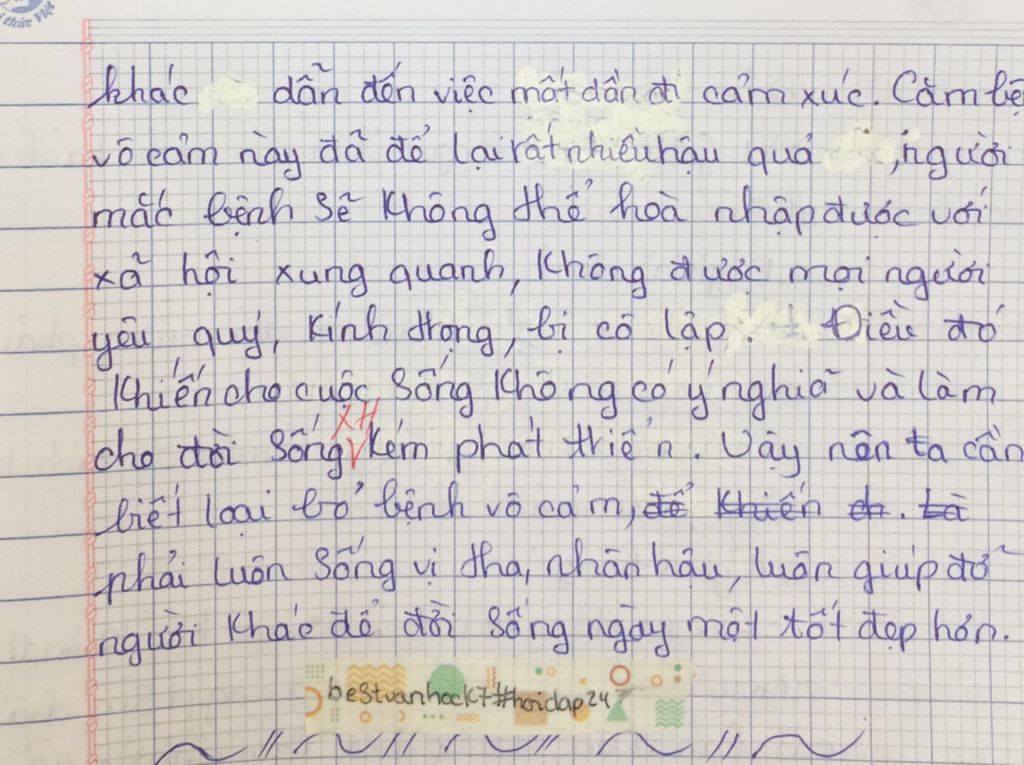 thức Việt
khác dẫn đến việc mất dần đi cảm xúc. Căm bệ
vô cảm này đã để lại rất nhiều hậu quả , người
mắc bệnh sẽ không thể hoà nhập được với
xã hội xung quanh, không được mọi người
yêu quý, kính trọng, bị cô lập. Điều đó
khiến cho cuộc sống không có ý nghĩa và làm
XH
cho đời sống kém phát triển. Vậy nên ta cần
biết loại bỏ bệnh vô cảm, để khiến ch. là
phải luôn sống vị tha, nhân hậu, luôn giúp đỡ
người khác để đời sống ngày một tốt đẹp hơn.
bestvanhock7#hoidap247